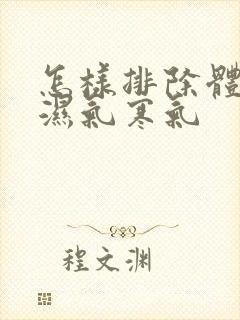 怎樣排除體
濕氣寒氣
程文渊